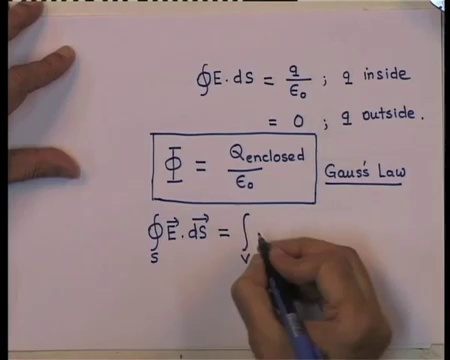 ∮E.ds = q/ε₀ ; q inside
= 0 ; q outside.
Φ = Qenclosed/ε₀ Gauss's Law
∮ₛ E⃗.dS⃗ = ∫ᵥ